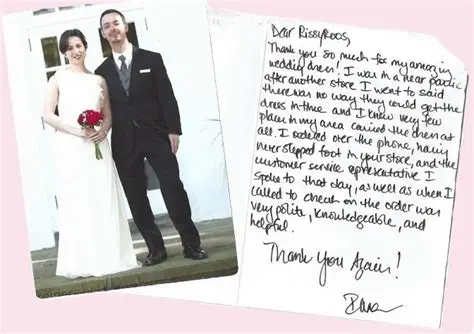 Dear RissyRoos,
Thank you so much for my amazing
wedding dress! I was in a near panic
after another store I went to said
there was no way they could get the
dress in time and I knew very few
places in my area carried the dress at
all. I ordered over the phone, having
never stepped foot in your store, and the
customer service representative I
spoke to that day, as well as when I
called to check on the order was
very polite, knowledgeable, and
helpful.
Thank You Again!